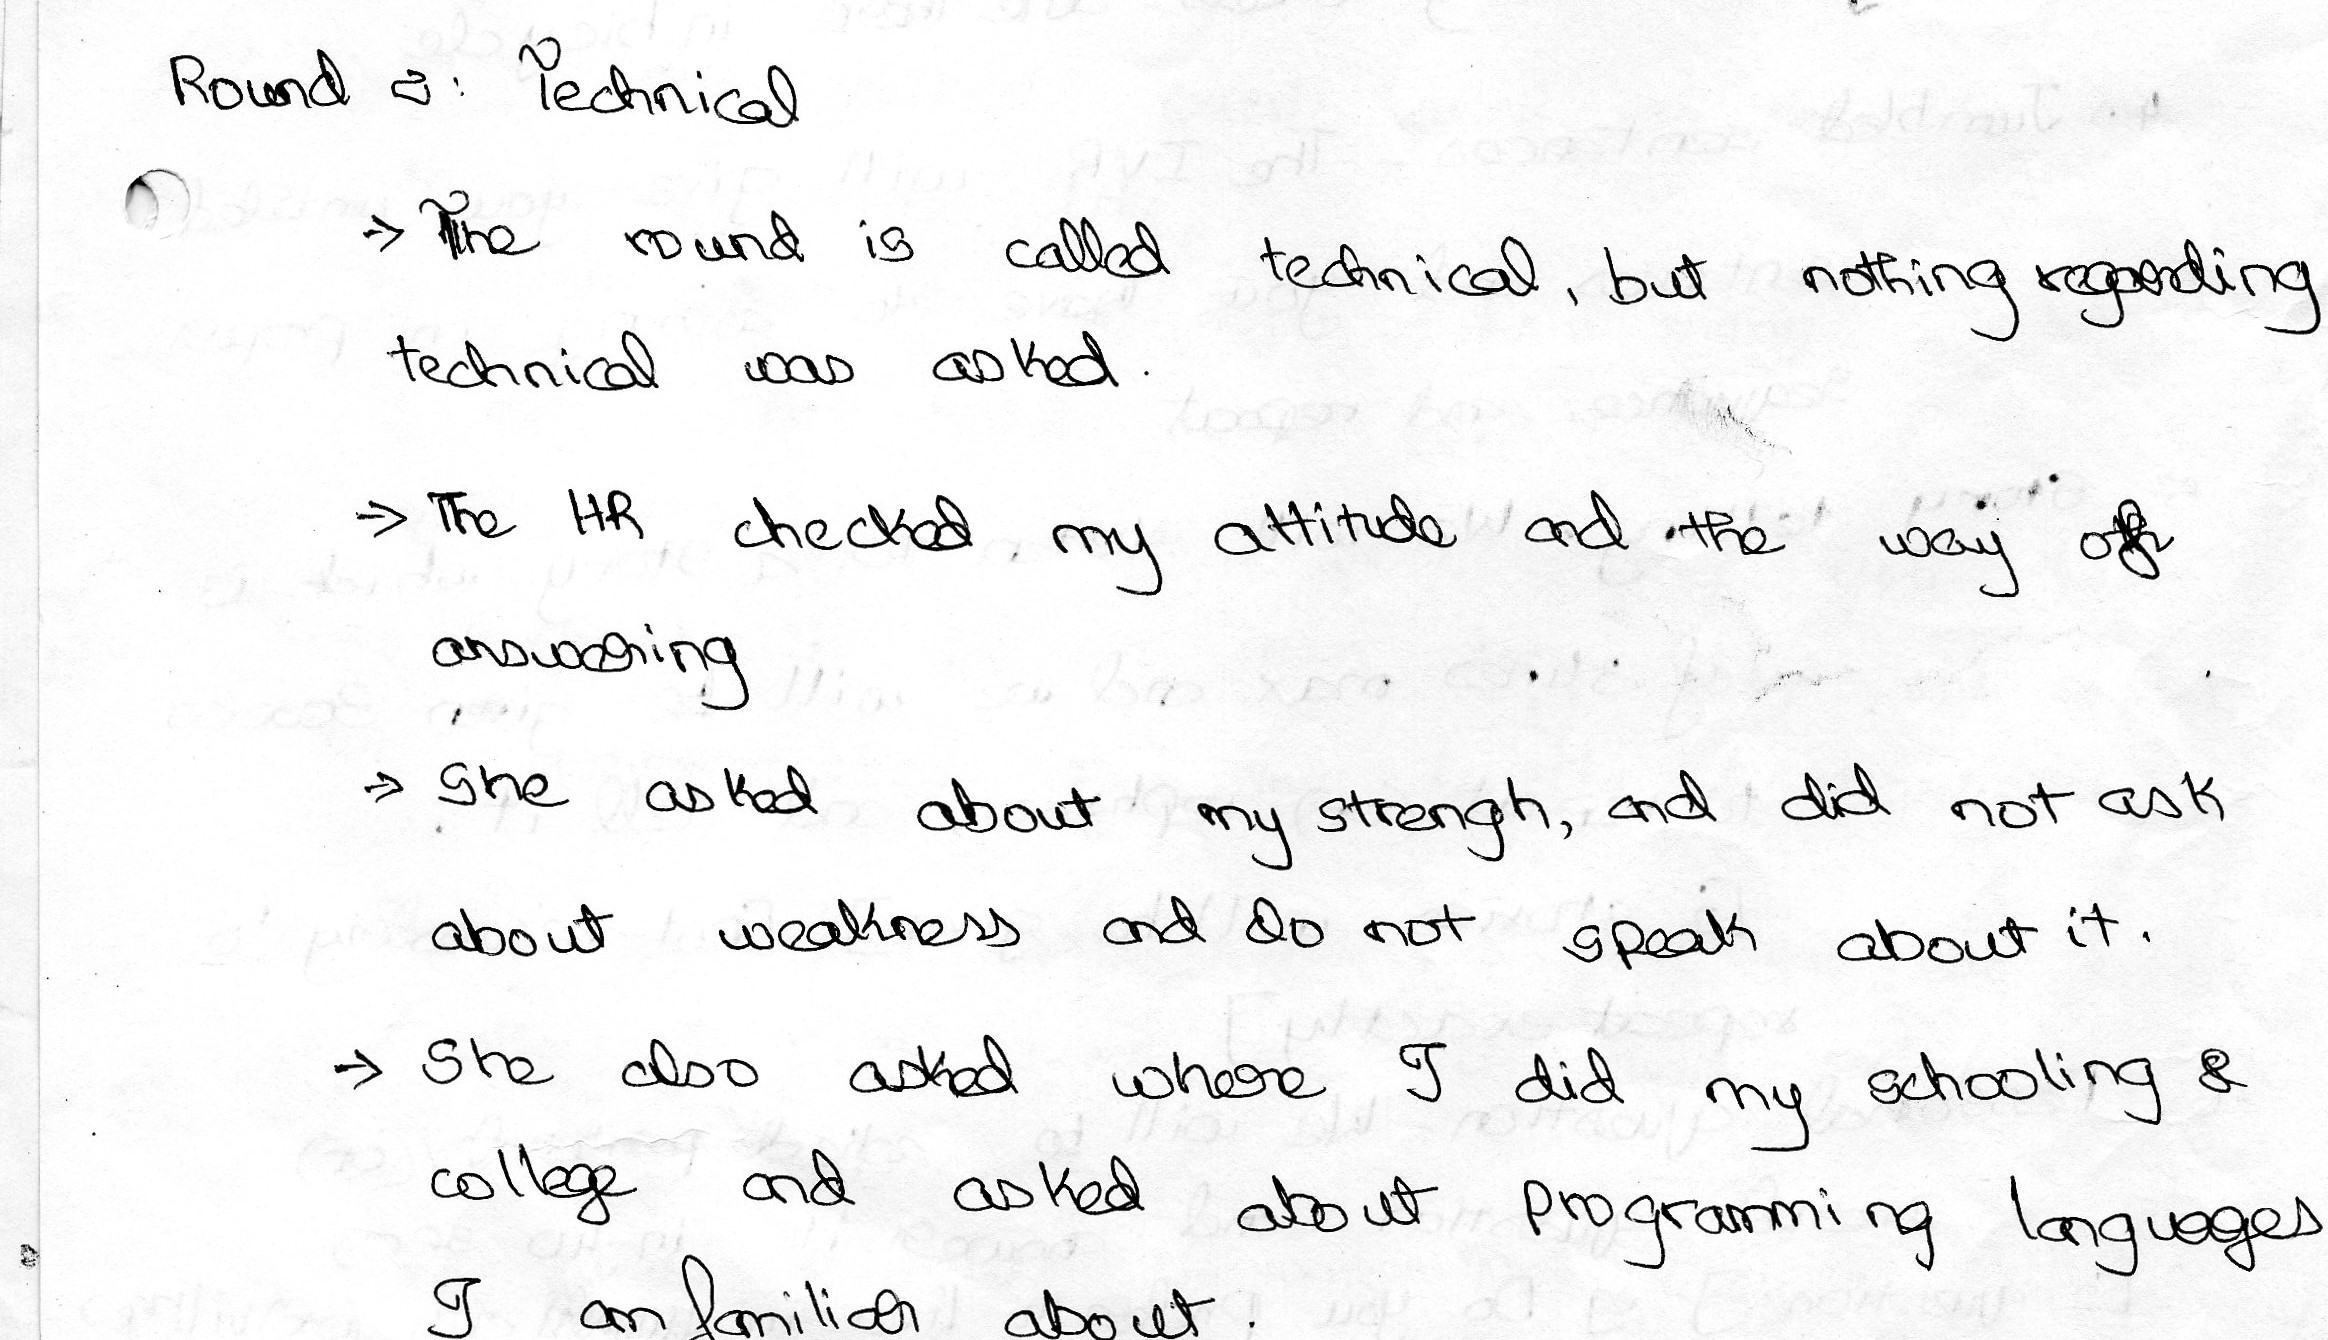 Round 2: Technical
→ The round is called technical, but nothing regarding
technical was asked.
→ The HR checked my attitude and the way of
answering
→ She asked about my strengh, and did not ask
about weakness and do not speak about it.
→ She also asked where I did my schooling &
college and asked about programming languages
I am familiar about.